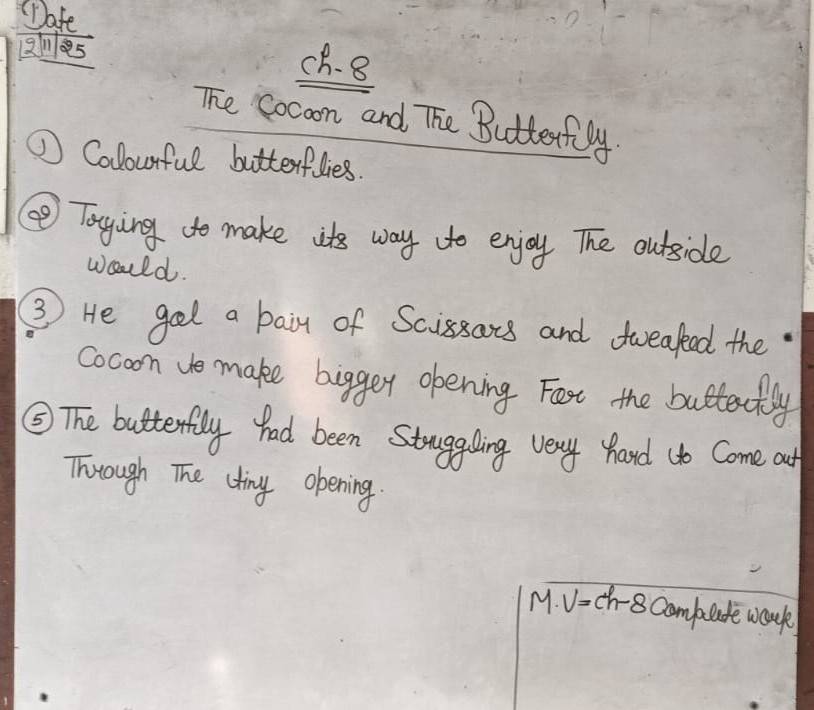 Date
12/11/25
Ch-8
The Cocoon and The Butterfly.
① Colourful butterflies.
② Trying to make its way to enjoy The outside
would.
③ He gol a pair of Scissors and tweaked the
Cocoon to make bigger opening For the butterfly
⑤ The butterfly had been Struggling very hard to Come out
Through The tiny opening.
M.V=Ch-8 Complete work